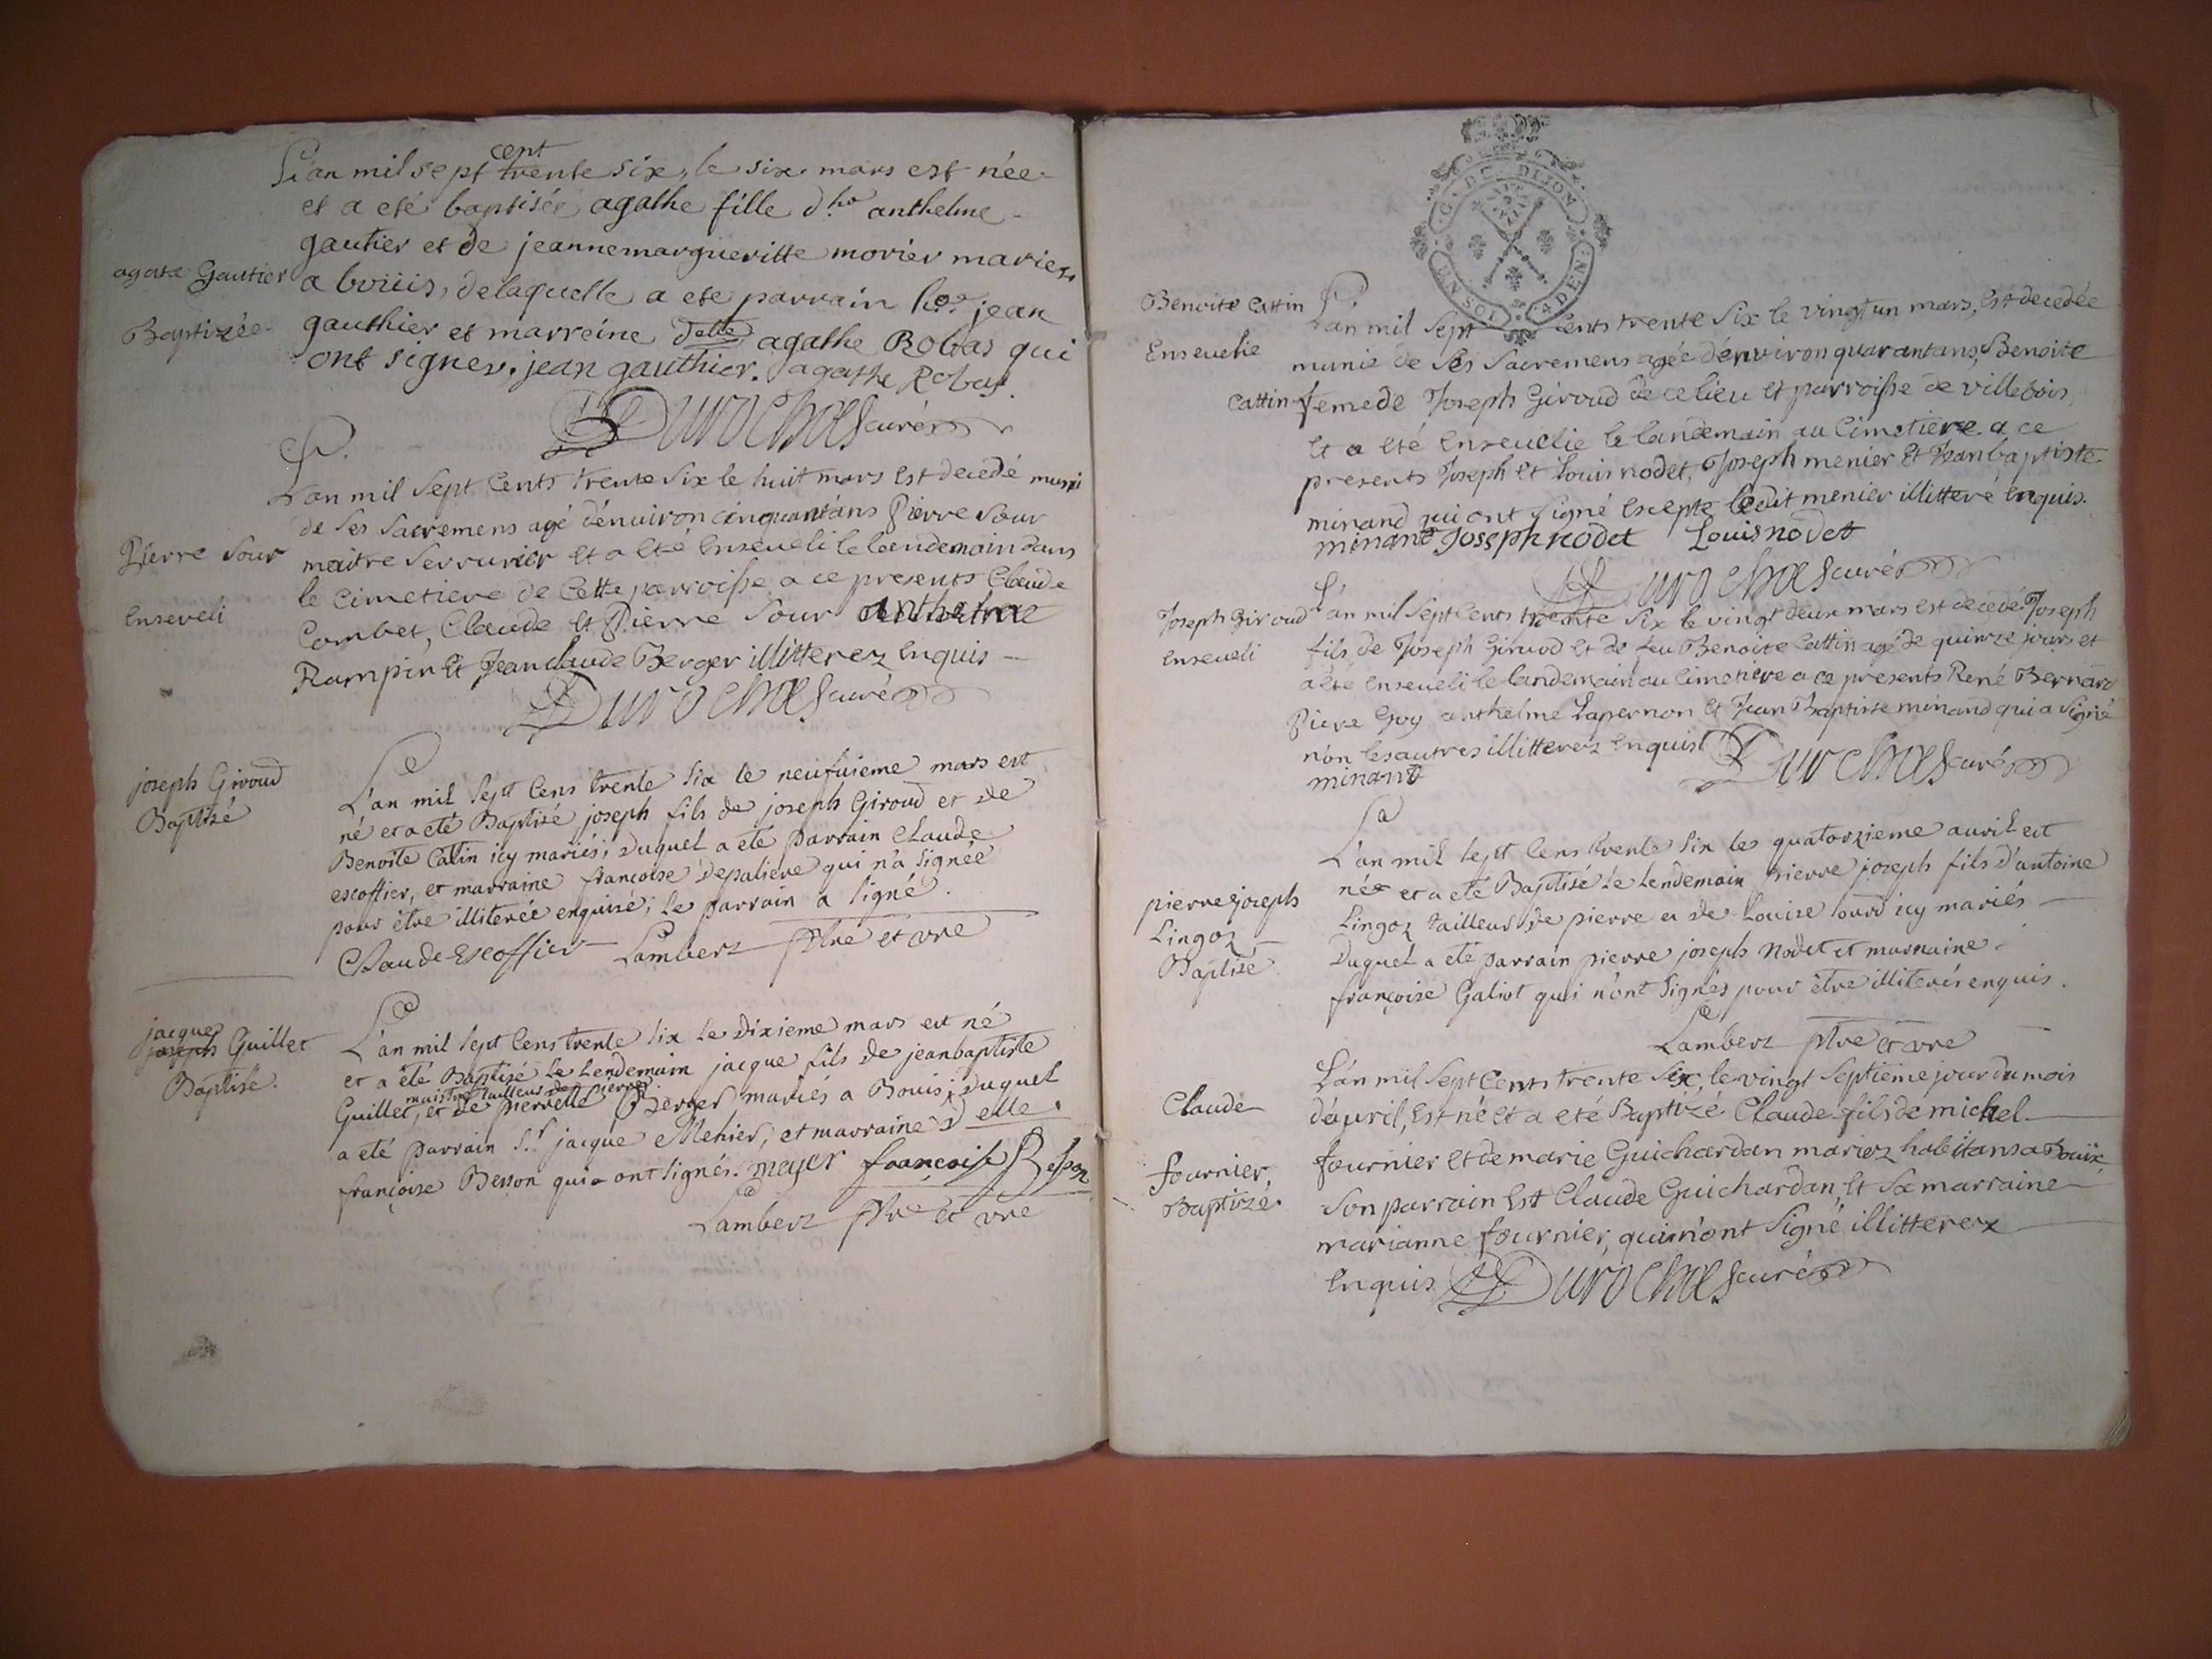 L'an mil sept cent trente six, le six mars est née
et a eté baptisée agathe fille d.ho anthelme
gautier et de jeanne margueritte morier mariez
agate Gautier
a boüis, de laquelle a ete parrain ho.e jean
Baptizée
gauthier et marreine delle agathe Robas qui
ont signes. jean gauthier. agathe Robas.
Durochas curé
L'an mil Sept Cents trente Six le huit mars Est decedé muni
de Ses Sacremens agé d'enuiron cinquant'ans Pierre Sour
Pierre Sour
maitre Serrurier et a Eté Enseueli le Landemain dans
le Cimetiere de Cette parroisse a ce presents Claude
Enseveli
Combet, Claude Et Pierre Sour anthelme
Rampin Et Jean claude Berger illitterez Enquis
Durochas curé
joseph Giroud
Baptisé
L'an mil sept Cens trente six le neufuieme mars est
né et a eté Baptisé joseph fils de joseph Giroud et de
Benoite Catin icy mariés; duquel a eté parrain Claude
escoffier, et marraine françoise depaliere qui n'a signée
pour être illiterée enquise; le parrain a signé.
Claude Escoffier Lambert ptre et vre
jacque
joseph Guillet
Baptisé.
L'an mil sept Cens trente six le dixieme mars est né
et a été Baptisé le Lendemain jacque fils de jean baptiste
maistre tailleur de pierre
Guillet, et de pierrette Berger mariés a Bouis; duquel
a eté parrain S.r jacque Mehier, et marraine d elle
françoise Besson qui ont signés. meyer françoise Besson
Lambert ptre et vre
G. DE DIJON
UN SOL 4 DEN
Benoite Cattin
Enseuelie
L'an mil Sept Cents trente Six le vingt un mars, Est decedée
munie de Ses Sacremens agée d'enuiron quarant ans, Benoite
Cattin femme de Joseph Giroud de ce lieu Et parroisse de villebois,
Et a eté Enseuelie le landemain au Cimetiere a ce
presents Joseph Et Louis nodet, Joseph menier Et Jean baptiste
minand qui ont Signé Excepte ledit menier illitteré Enquis.
minand Joseph nodet Louis nodet
Durochas curé
Joseph Giroud
Enseueli
L'an mil Sept Cents trente Six le vingt deux mars est decede Joseph
fils de Joseph Giroud Et de feu Benoite Cattin agé de quinze jours et
a eté Enseueli le landemain au Cimetiere a ce presents René Bernard
Piere Guy anthelme Lapernon Et Jean Baptiste minand qui a Signé
non les autres illitterez Enquis
minand
Durochas curé
pierre joseph
Lingoz
Baptisé
L'an mil sept Cens trente six les quatorzieme auril est
né et a eté Baptisé le lendemain pierre joseph fils d'antoine
Lingoz tailleur de pierre et de Louise sourd icy mariés
duquel a eté parrain pierre joseph Nodet et marraine
françoise Galiot qui n'ont signés pour être illiterés enquis.
Lambert ptre et vre
Claude
fournier,
Baptizé
L'an mil Sept Cents trente Six, le vingt Septieme jour du mois
d'auril, Est né Et a eté Baptizé Claude fils de michel
fournier Et de marie Guichardan mariez habitans a Bouix
Son parrain Est Claude Guichardan, Et Sa marraine
marianne fournier, qui n'ont Signé illitterez
Enquis Durochas curé